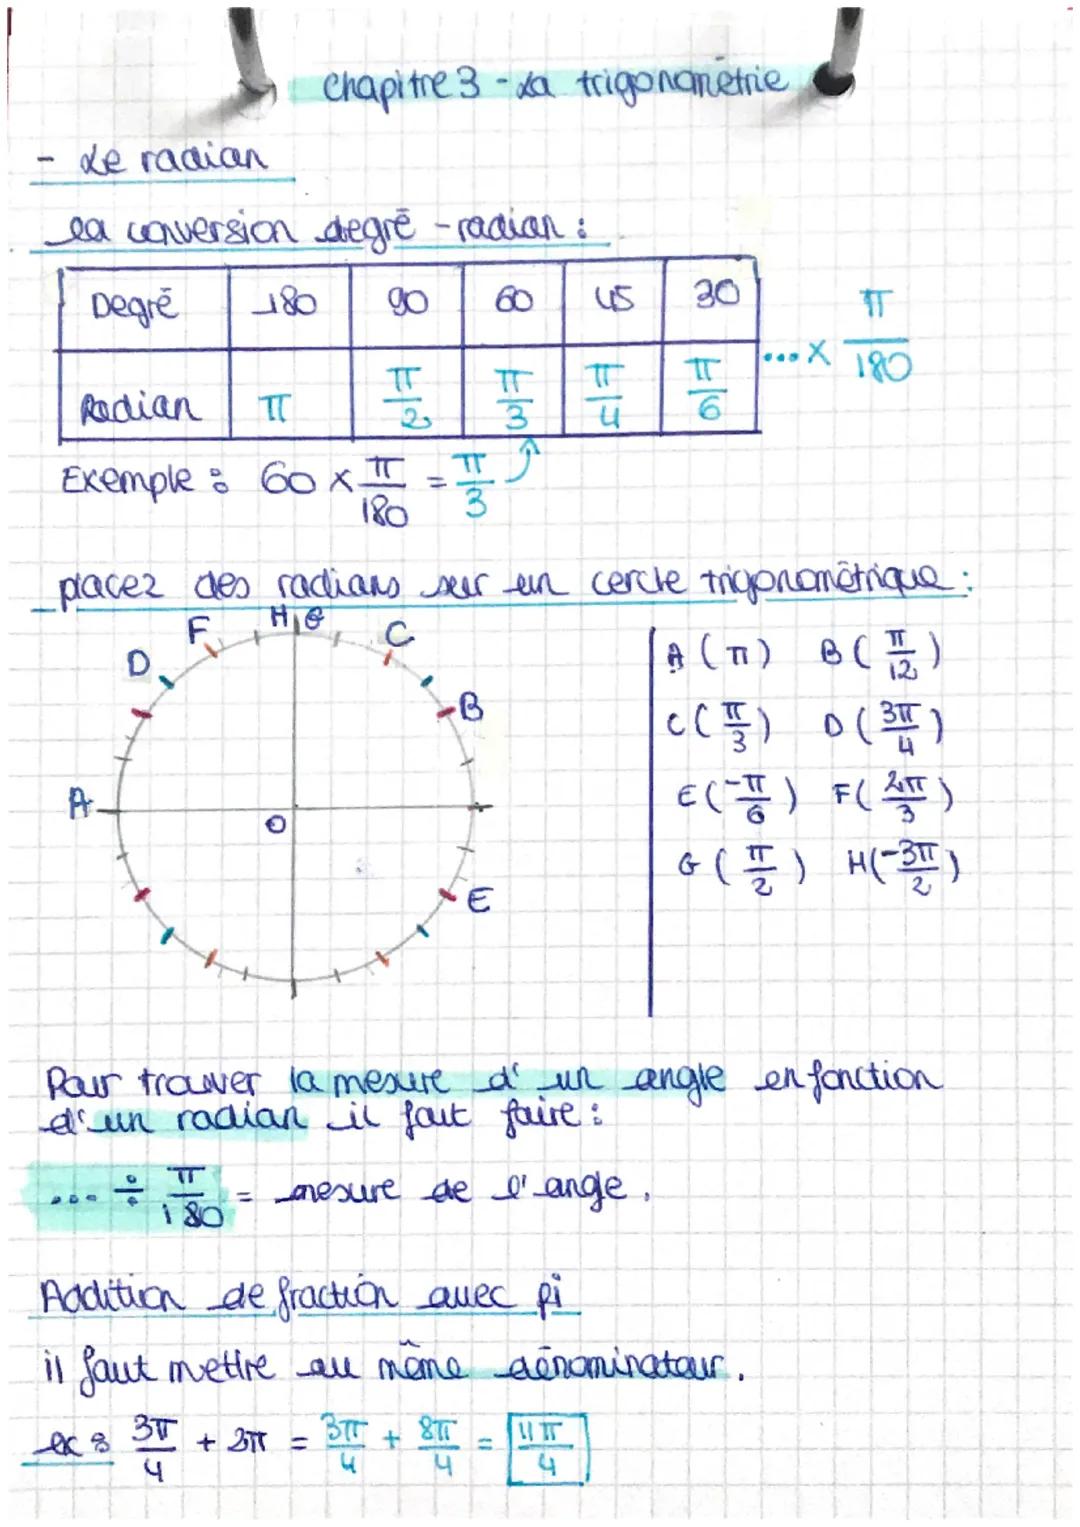 Chapitre 3 - La trigonométrie
- Le radian
la conversion degré - radian :
Degré 180 90 60 45 30
Radian π π/2 π/3 π/4 π/6 ... × π/180
Exemple : 60 × π/180 = π/3
placez des radians sur un cercle trigonométrique :
H G
F C
D
B
A
O
E
A (π) B (π/12)
C (π/3) D (3π/4)
E (-π/6) F (2π/3)
G (π/2) H (-3π/2)
Pour trouver la mesure d'un angle en fonction
d'un radian il faut faire :
... ÷ π/180 = mesure de l'ange.
Addition de fraction avec pi
il faut mettre au même dénominateur.
ex : 3π/4 + 2π = 3π/4 + 8π/4 = 11π/4